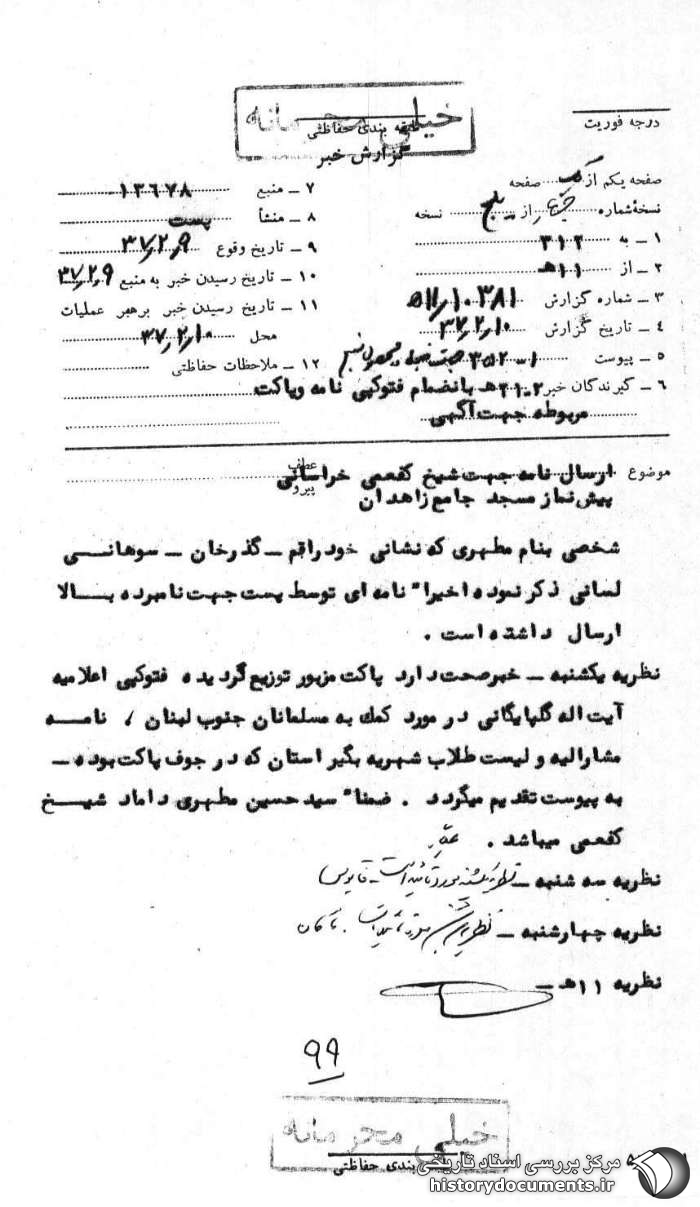 خیلی محرمانه
طبقه بندی حفاظتی
گزارش خبر
درجه فوریت
صفحه یکم از یک صفحه
نسخهٔ شماره از پنج نسخه
۱ ـ به ۳۱۲
۲ ـ از ۱۱ه‍
۳ ـ شماره گزارش
۴ ـ تاریخ گزارش ۳۷٫۲٫۱۰
۵ ـ پیوست
۶ ـ گیرندگان خبر ۳۱۰۲ه‍ بانضمام فتوکپی نامه وپاکت
مربوطه جهت آگهی
۷ ـ منبع ۱۳۶۷۸
۸ ـ منشأ پست
۹ ـ تاریخ وقوع ۳۷٫۲٫۹
۱۰ ـ تاریخ رسیدن خبر به منبع ۳۷٫۲٫۹
۱۱ ـ تاریخ رسیدن خبر برهبر عملیات
محل ۳۷٫۲٫۱۰
۱۲ ـ ملاحظات حفاظتی
موضوع ارسال نامه جهت شیخ کفعمی خراسانی
عطف
پیرو
پیش نماز مسجد جامع زاهدان
شخصی بنام مطهری که نشانی خود راقم ـ گذرخان ـ سوهانی
لسانی ذکر نموده اخیرا" نامه ای توسط پست جهت نامبرده بالا
ارسال داشته است .
نظریه یکشنبه ـ خبرصحت دارد پاکت مزبور توزیع گردیده فتوکپی اعلامیه
آیت اله گلپایگانی در مورد کمک به مسلمانان جنوب لبنان ، نامه
مشارالیه و لیست طلاب شهریه بگیر استان که در جوف پاکت بوده ـ
به پیوست تقدیم میگردد . ضمنا" سید حسین مطهری داماد شیخ
کفعمی میباشد .
نظریه سه شنبه ـ نظریه یکشنبه مورد تائید است .
نظریه چهارشنبه ـ نظریه سه شنبه مورد تائید است .
نظریه ۱۱ه‍ ـ
۹۹
خیلی محرمانه
طبقه بندی حفاظتی
مرکز بررسی اسناد تاریخی
historydocuments.ir